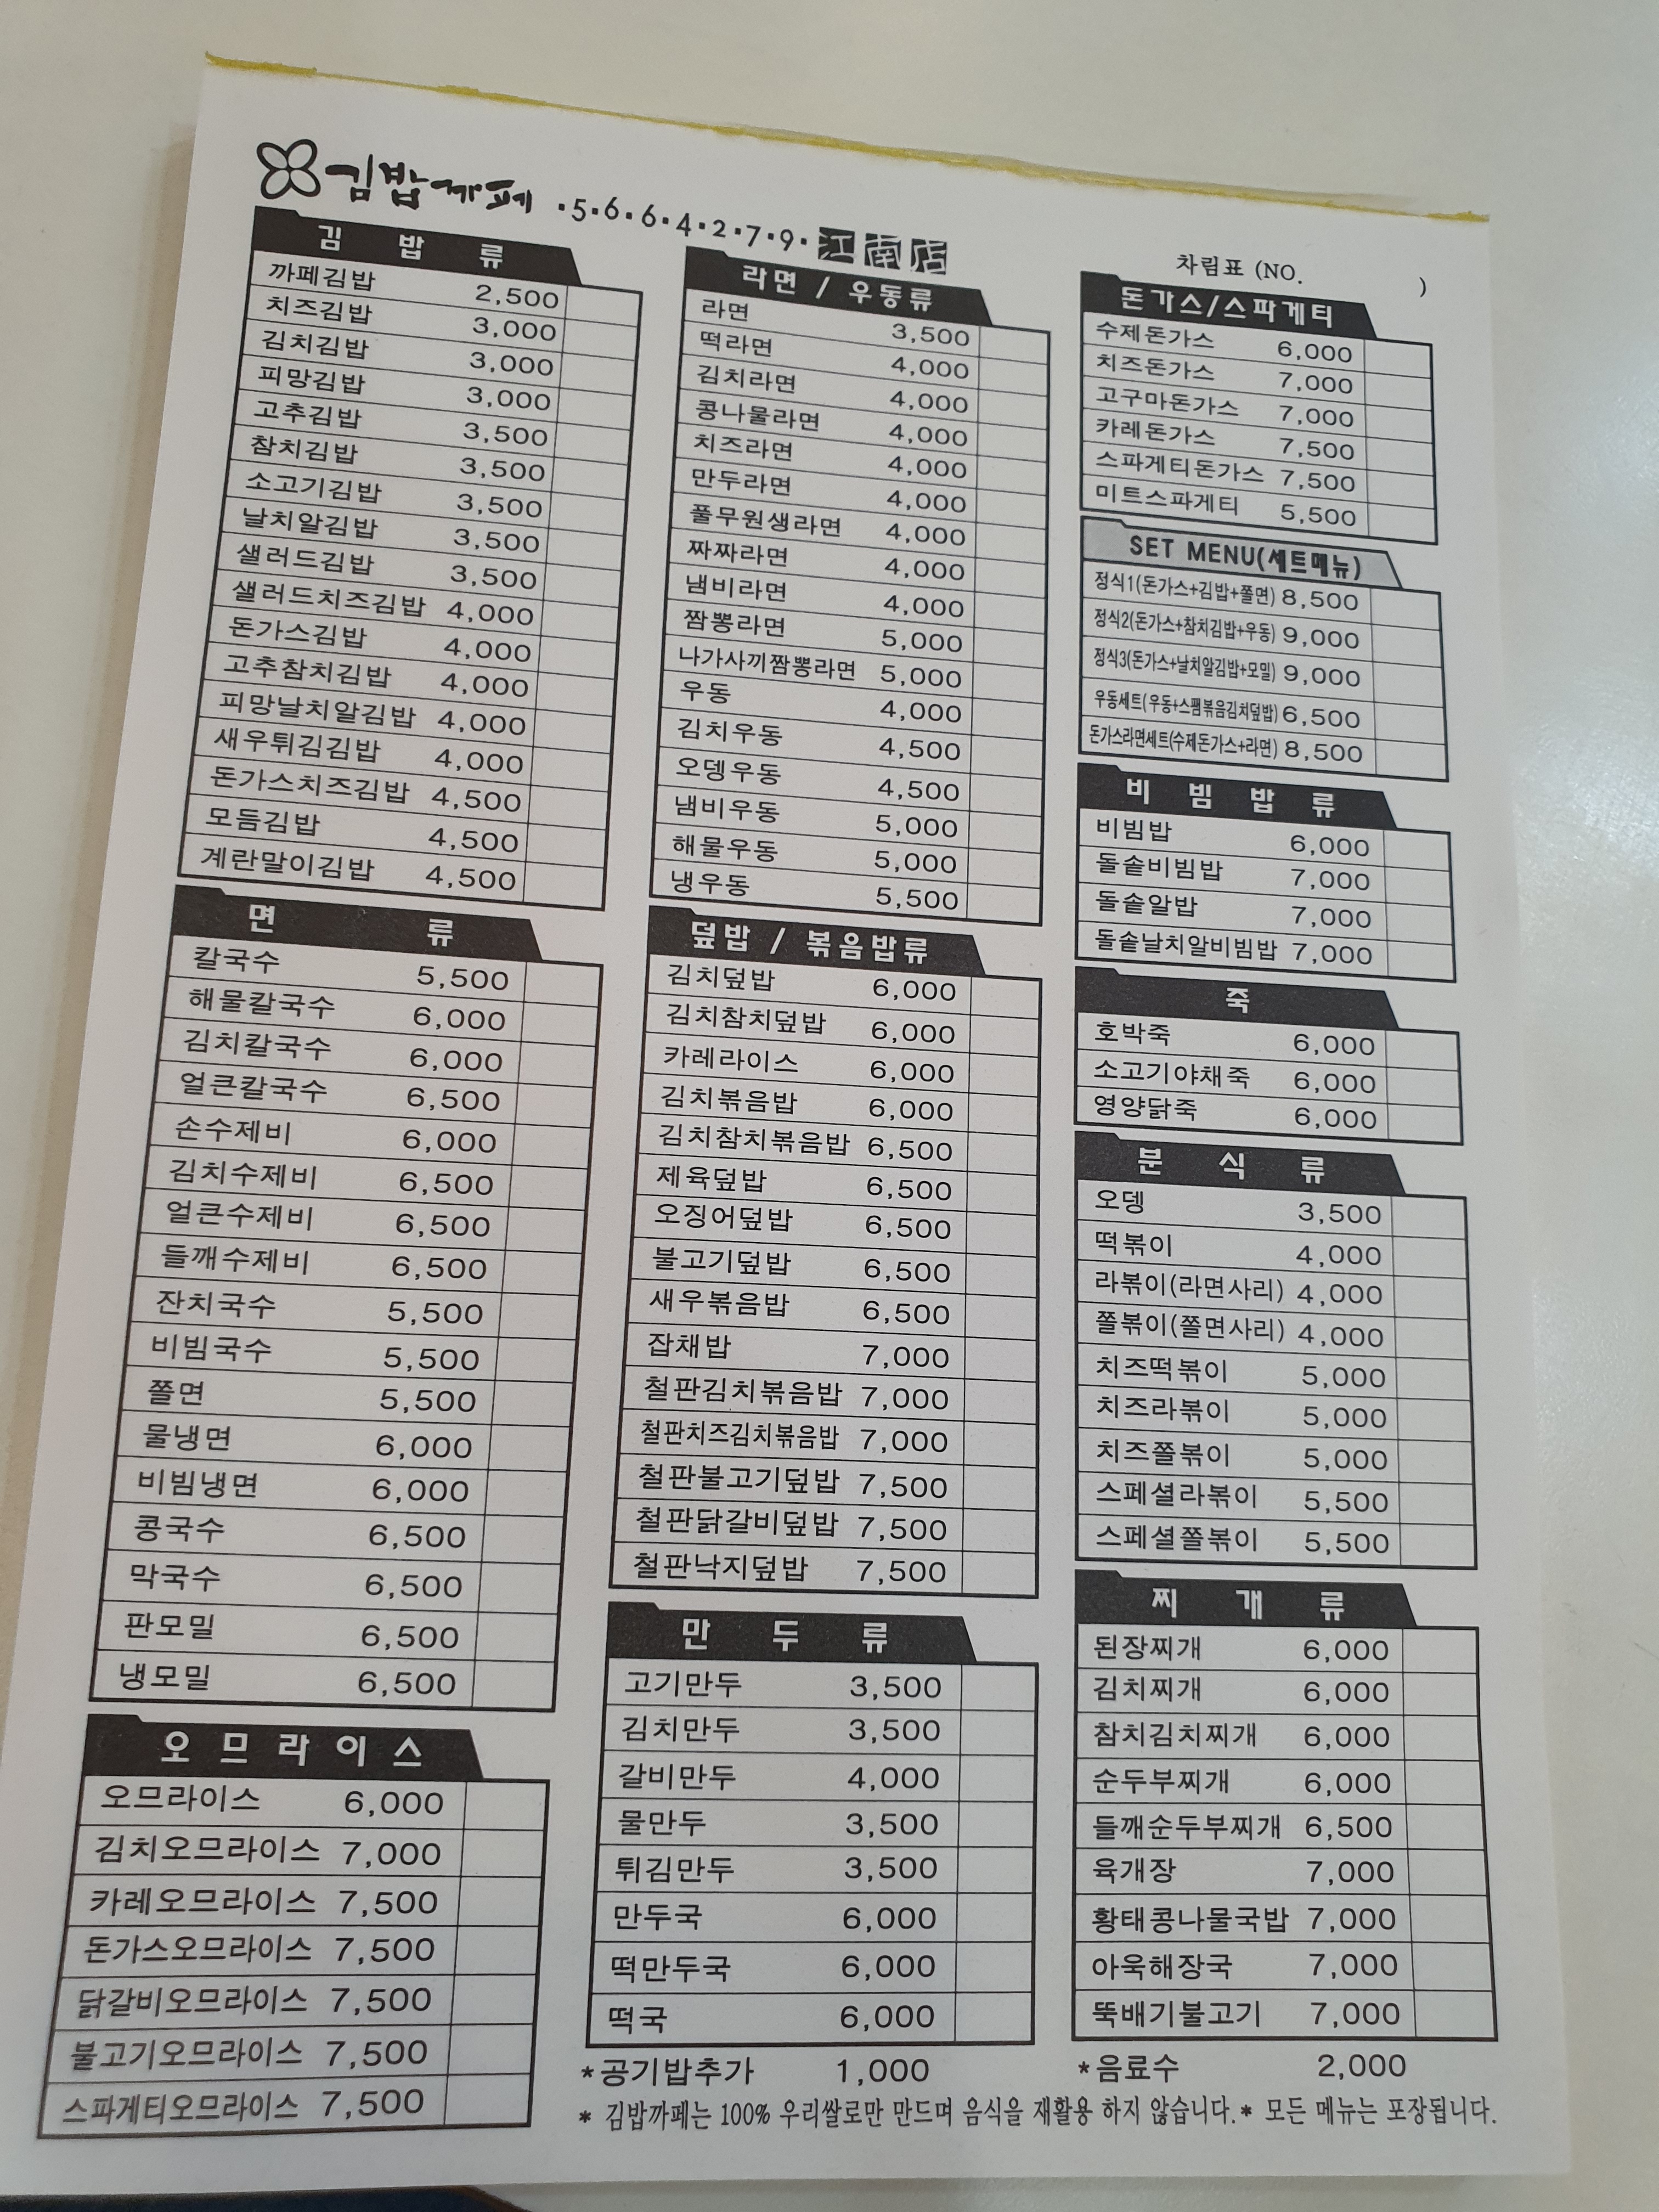 김밥까페 ·5·6·6·4·2·7·9· 江南店
차림표 (NO. )
김 밥 류
까페김밥 2,500
치즈김밥 3,000
김치김밥 3,000
피망김밥 3,000
고추김밥 3,500
참치김밥 3,500
소고기김밥 3,500
날치알김밥 3,500
샐러드김밥 3,500
샐러드치즈김밥 4,000
돈가스김밥 4,000
고추참치김밥 4,000
피망날치알김밥 4,000
새우튀김김밥 4,000
돈가스치즈김밥 4,500
모듬김밥 4,500
계란말이김밥 4,500
면 류
칼국수 5,500
해물칼국수 6,000
김치칼국수 6,000
얼큰칼국수 6,500
손수제비 6,000
김치수제비 6,500
얼큰수제비 6,500
들깨수제비 6,500
잔치국수 5,500
비빔국수 5,500
쫄면 5,500
물냉면 6,000
비빔냉면 6,000
콩국수 6,500
막국수 6,500
판모밀 6,500
냉모밀 6,500
오므라이스
오므라이스 6,000
김치오므라이스 7,000
카레오므라이스 7,500
돈가스오므라이스 7,500
닭갈비오므라이스 7,500
불고기오므라이스 7,500
스파게티오므라이스 7,500
라면 / 우동류
라면 3,500
떡라면 4,000
김치라면 4,000
콩나물라면 4,000
치즈라면 4,000
만두라면 4,000
풀무원생라면 4,000
짜짜라면 4,000
냄비라면 4,000
짬뽕라면 5,000
나가사끼짬뽕라면 5,000
우동 4,000
김치우동 4,500
오뎅우동 4,500
냄비우동 5,000
해물우동 5,000
냉우동 5,500
덮밥 / 볶음밥류
김치덮밥 6,000
김치참치덮밥 6,000
카레라이스 6,000
김치볶음밥 6,000
김치참치볶음밥 6,500
제육덮밥 6,500
오징어덮밥 6,500
불고기덮밥 6,500
새우볶음밥 6,500
잡채밥 7,000
철판김치볶음밥 7,000
철판치즈김치볶음밥 7,000
철판불고기덮밥 7,500
철판닭갈비덮밥 7,500
철판낙지덮밥 7,500
만 두 류
고기만두 3,500
김치만두 3,500
갈비만두 4,000
물만두 3,500
튀김만두 3,500
만두국 6,000
떡만두국 6,000
떡국 6,000
*공기밥추가 1,000
돈가스/스파게티
수제돈가스 6,000
치즈돈가스 7,000
고구마돈가스 7,000
카레돈가스 7,500
스파게티돈가스 7,500
미트스파게티 5,500
SET MENU(세트메뉴)
정식1(돈가스+김밥+쫄면) 8,500
정식2(돈가스+참치김밥+우동) 9,000
정식3(돈가스+날치알김밥+모밀) 9,000
우동세트(우동+스팸볶음김치덮밥) 6,500
돈가스라면세트(수제돈가스+라면) 8,500
비 빔 밥 류
비빔밥 6,000
돌솥비빔밥 7,000
돌솥알밥 7,000
돌솥날치알비빔밥 7,000
죽
호박죽 6,000
소고기야채죽 6,000
영양닭죽 6,000
분 식 류
오뎅 3,500
떡볶이 4,000
라볶이(라면사리) 4,000
쫄볶이(쫄면사리) 4,000
치즈떡볶이 5,000
치즈라볶이 5,000
치즈쫄볶이 5,000
스페셜라볶이 5,500
스페셜쫄볶이 5,500
찌 개 류
된장찌개 6,000
김치찌개 6,000
참치김치찌개 6,000
순두부찌개 6,000
들깨순두부찌개 6,500
육개장 7,000
황태콩나물국밥 7,000
아욱해장국 7,000
뚝배기불고기 7,000
*음료수 2,000
* 김밥까페는 100% 우리쌀로만 만드며 음식을 재활용 하지 않습니다.* 모든 메뉴는 포장됩니다.